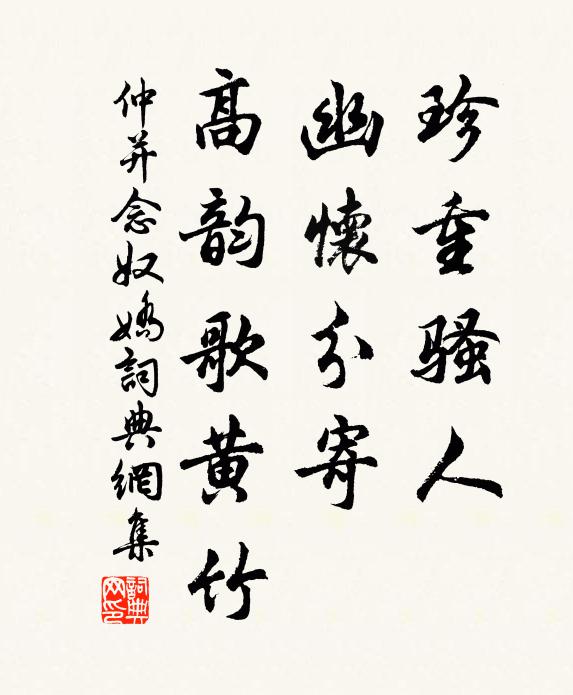 珍重骚人
幽懷分寄
高韵歌黄竹
仲并念奴嬌詞典網集
詞典网印